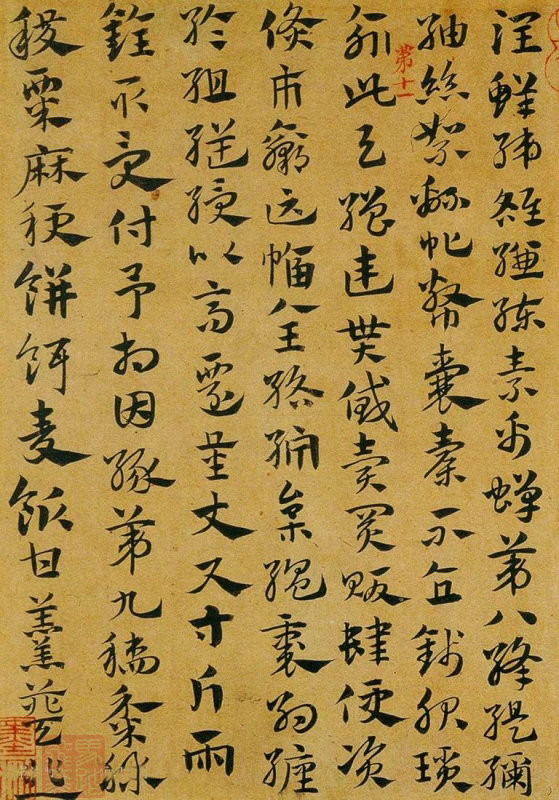 潤鮮綈雒縑練素帛蟬第八絳緹
紬絲絮綿敝囊橐不直錢服瑣
第十一
此與繒連貰貸賣買販肆便資
貨市贏匹幅全綌紵枲縕裹約纏
綸組縌綬以高遷量丈尺寸斤兩
銓取受付予相因緣第九稻黍秫
稷粟麻秔餅餌麥飯甘豆羹